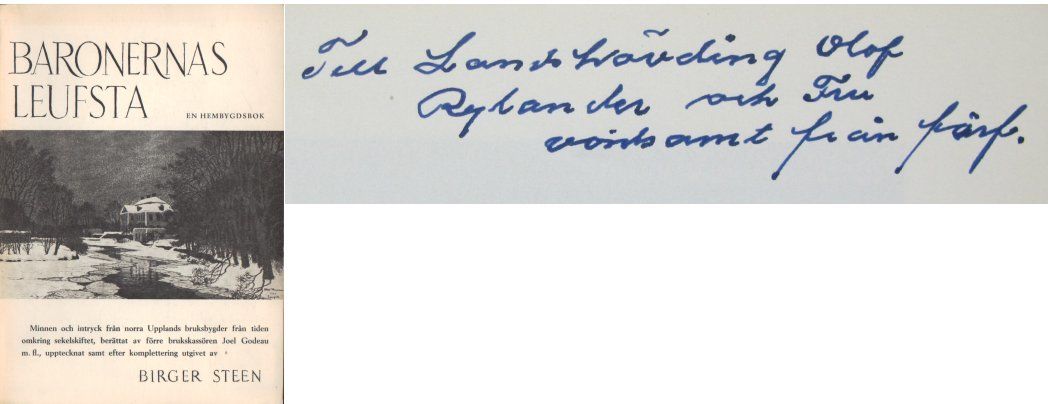 BARONERNAS
LEUFSTA
EN HEMBYGDSBOK
Minnen och intryck från norra Upplands bruksbygder från tiden
omkring sekelskiftet, berättat av förre brukskassören Joel Godeau
m. fl., upptecknat samt efter komplettering utgivet av
BIRGER STEEN
Till Landshövding Olof
Rylander och Fru
vördsamt från förf.